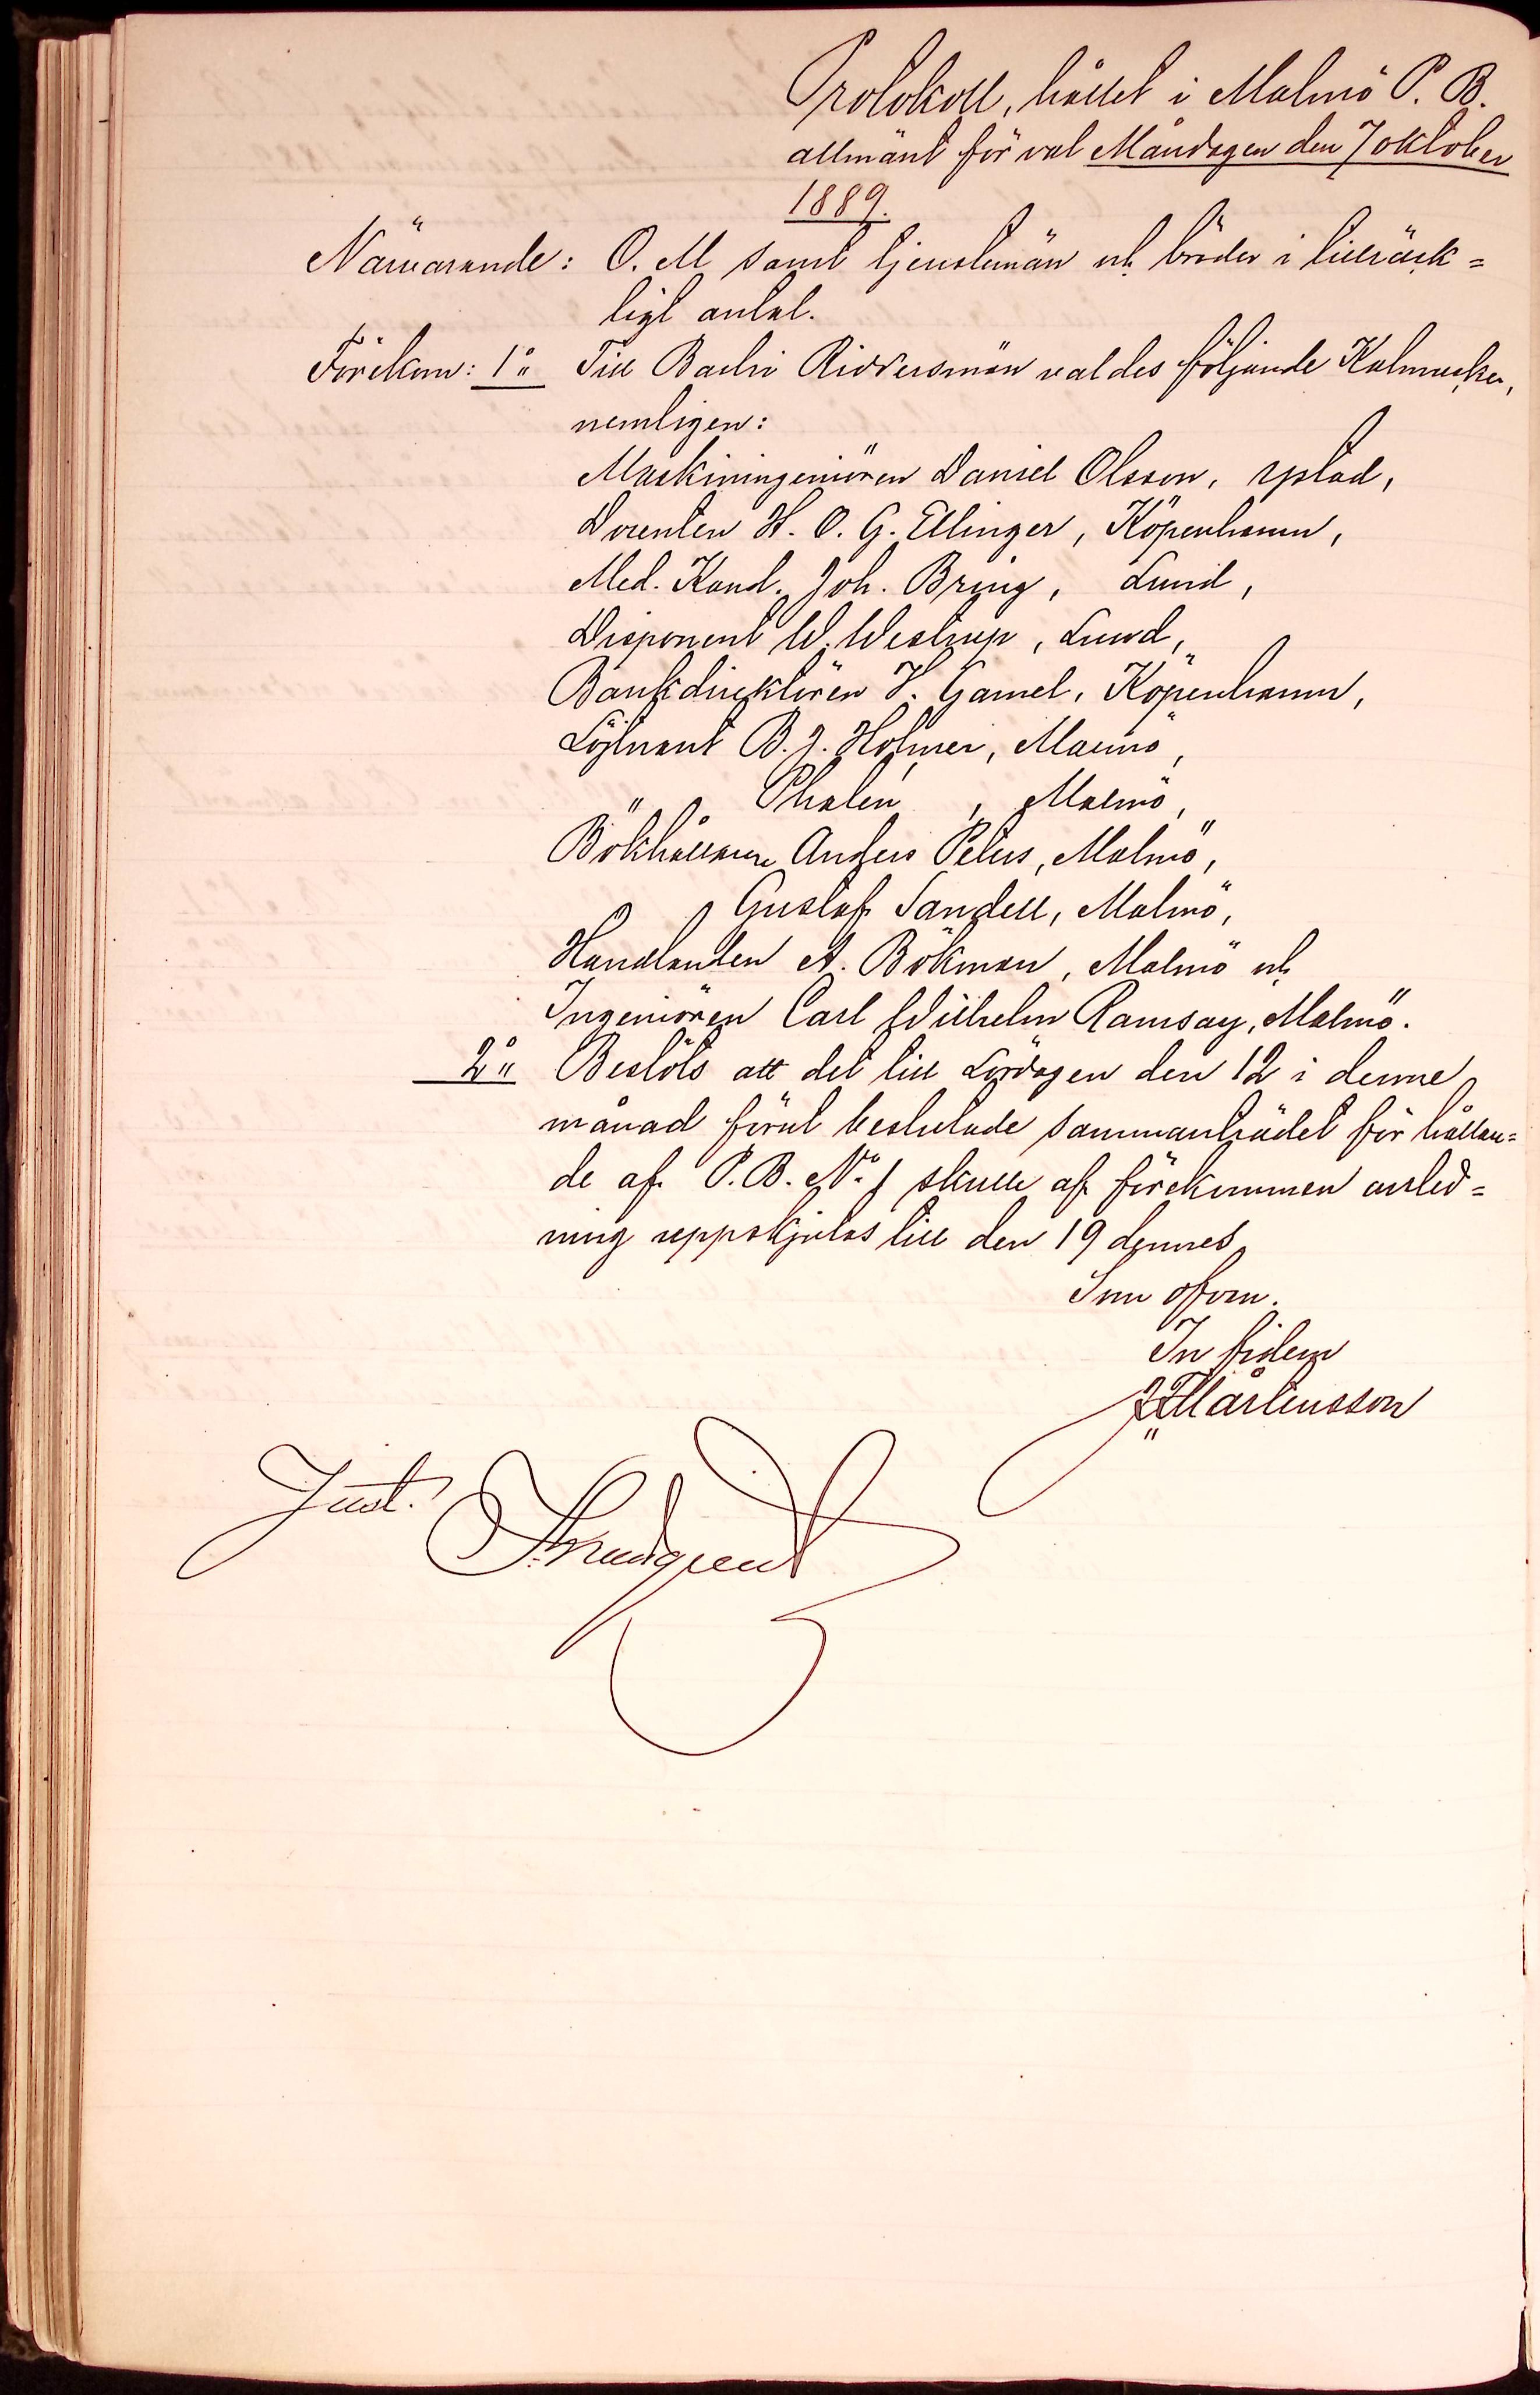 Protokoll, hållet i Malmö P. B.
allmänt för val Måndagen den 7 oktober
1889.
Närvarande: O. M samt tjenstemän och bröder i tillräck=
ligt antal.
Förekom: 1º Till Bacchi Riddersmän valdes följande Kalmucker,
nemligen:
Maskiningeniören Daniel Olsson, Ystad,
Docenten H. O. G. Ellinger, Köpenhamn,
Med. Kand. Joh. Bring, Lund,
Disponent W. Westrup, Lund,
Bankdirektören H. Gamel, Köpenhamn,
Löjtnant B. J. Holmer, Malmö,
" Phalén, Malmö,
Bokhållaren Anders Peters, Malmö,
" Gustaf Sandell, Malmö,
Handlanden A. Bökman, Malmö och
Ingeniören Carl Wilhelm Ramsay, Malmö.
2º Beslöts att det till Lördagen den 12 i denne
månad förut beslutade sammanträdet för hållan=
de af P. B. Nº 1 skulle af förekommen anled=
ning uppskjutas till den 19 dennes
Som ofvan.
In fidem
Mårtensson
Just.